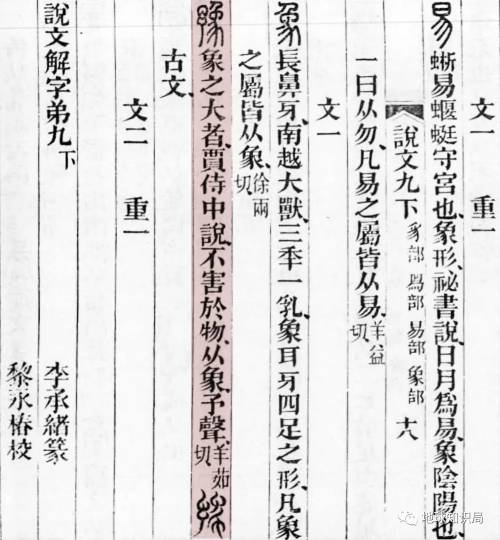 文一 重一
易 蜥易蝘蜓守宮也、象形、祕書說、日月爲易、象陰陽也、
說文九下 豸部 易部 象部 十八
一曰从勿、凡易之屬皆从易、羊益切
文一
象 長鼻牙、南越大獸、三季一乳、象耳牙四足之形、凡象
之屬皆从象、徐兩切
豫 象之大者、賈侍中說、不害於物、从象予聲、羊茹切
古文、
文二 重一
說文解字弟九下
李承緒篆
黎永椿校
地球知识局